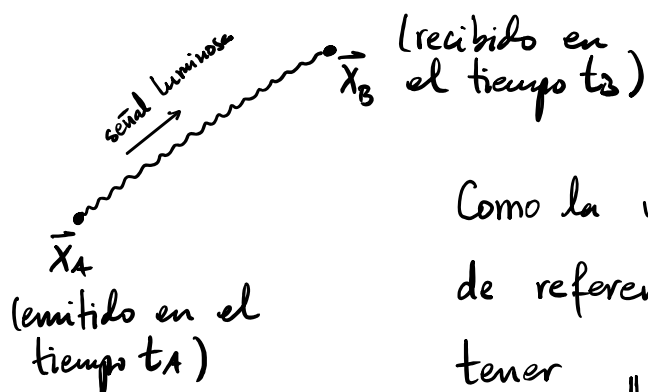 señal luminosa
(recibido en
el tiempo t_B)
\vec{x}_B
\vec{x}_A
(emitido en el
tiempo t_A)
Como la
de refere
tener